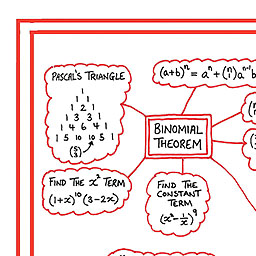 PASCAL'S TRIANGLE
1
1 1
1 2 1
1 3 3 1
1 4 6 4 1
1 5 10 10 5 1
(⁵₃)
(a+b)ⁿ = aⁿ + (ⁿ₁)aⁿ⁻¹b
BINOMIAL
THEOREM
FIND THE x² TERM
(1+x)¹⁰(3-2x)
FIND THE
CONSTANT
TERM
(x²-1/x)⁹